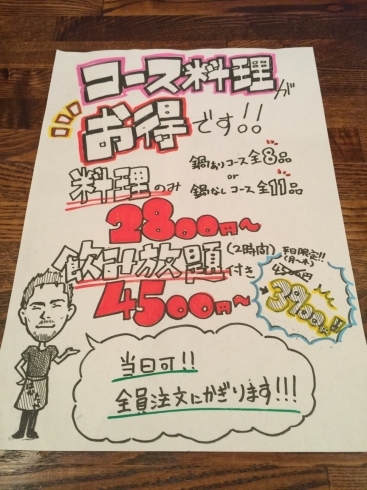 コース料理が
お得です!!
料理のみ
鍋ありコース全8品
or
鍋なしコース全11品
2800円〜
飲み放題(2時間)付き
4500円〜
平日限定!!
(月〜木)
4500円
3900円!!
当日可!!
全員注文にかぎります!!!